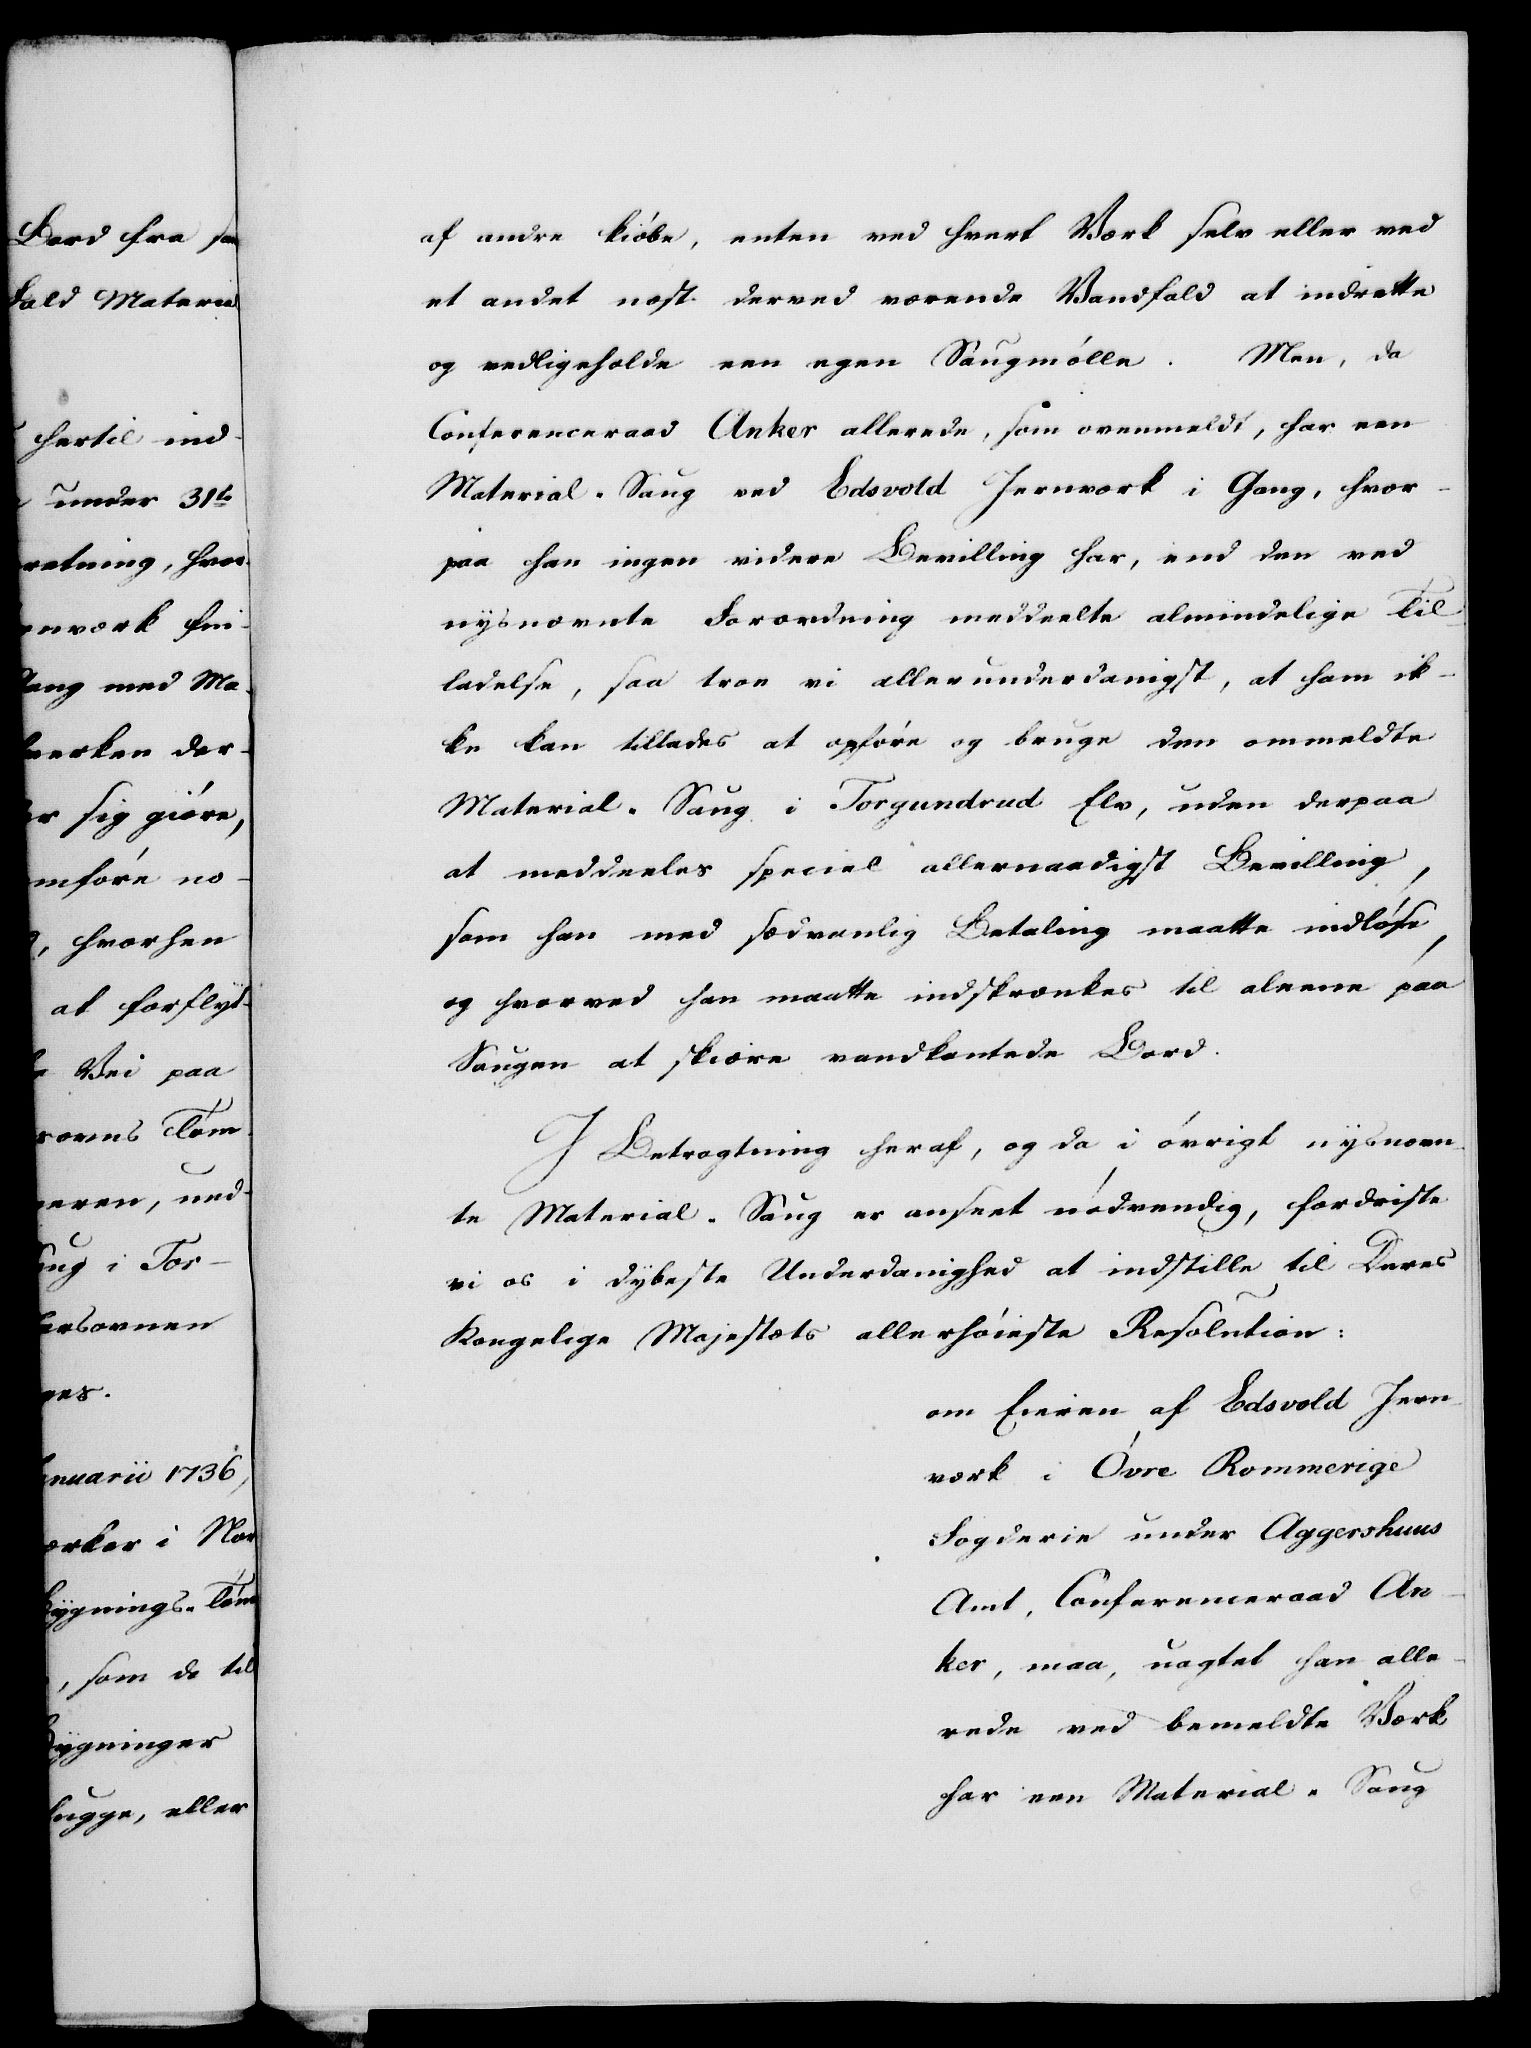 Bord fra
Fald Materia
hertil ind-
under 31te
retning, hvor-
enværk fin-
Gang med Ma-
værken der-
sig giöre,
mföre no-
, hvorhen
at forflyt-
Vei paa
Töm-
neren, ned-
aug i Tor-
ersovnen
ges.
anuarii 1736,
ærker i Nor
Bygnings-Töm
, som de til
Bygninger
hugge, eller
af andre kiöbe, enten ved hvert Værk selv eller ved
et andet næst derved værende Vandfald at indrette
og vedligeholde een egen Saugmölle. Men, da
Conferenceraad Anker allerede, som ovenmeldt, har een
Material-Saug ved Edsvold Jernværk i Gang, hvor-
paa han ingen videre Bevilling har, end den ved
nysnævnte Forordning meddeelte almindelige Til-
ladelse, saa troe vi allerunderdanigst, at ham ik-
ke kan tillades at opföre og bruge den ommeldte
Material-Saug i Torgundrud Elv, uden derpaa
at meddeeles speciel allernaadigst Bevilling,
som han med sædvanlig Betaling maatte indlöse,
og hvorved han maatte indskrænkes til aleene paa
Saugen at skiære vandkantede Bord.
I Betragtning heraf, og da i övrigt nysnævn-
te Material-Saug er anseet nödvendig, fordriste
vi os i dybeste Underdanighed at indstille til Deres
Kongelige Majestæts allerhöieste Resolution:
om Eieren af Edsvold Jern-
værk i Övre Rommerige
Fogderie under Aggershuus
Amt, Conferenceraad An-
ker, maa, uagtet han alle-
rede ved bemeldte Værk
har een Material-Saug